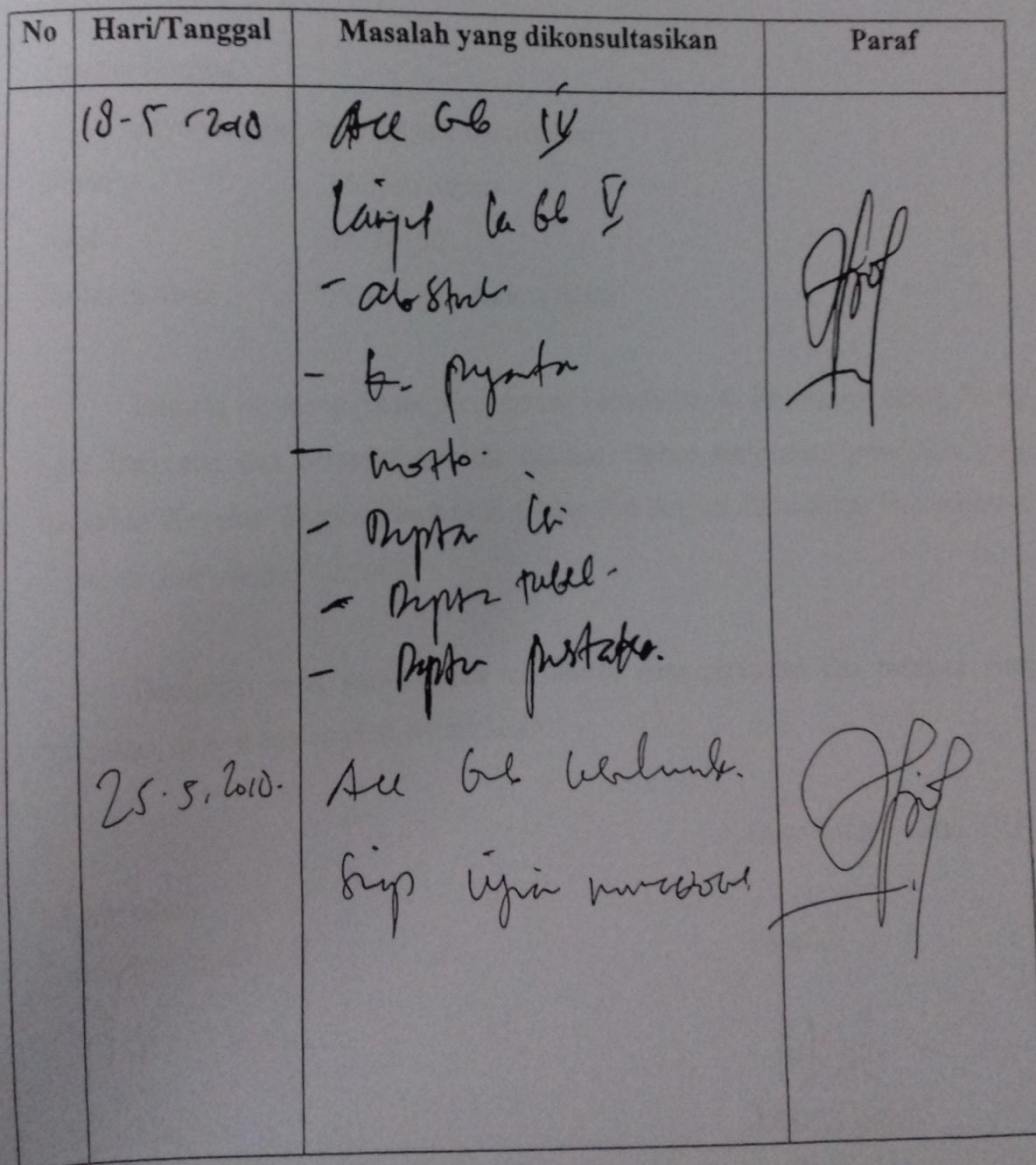 No Hari/Tanggal Masalah yang dikonsultasikan Paraf
18-5-2010 Acc Bab IV
Lanjut ke Bab V
- abstrak
- motto.
- Daptar isi
- Daptar tabel.
- Daptar pustaka.
25.5.2010. Acc Bab
Siap ujian